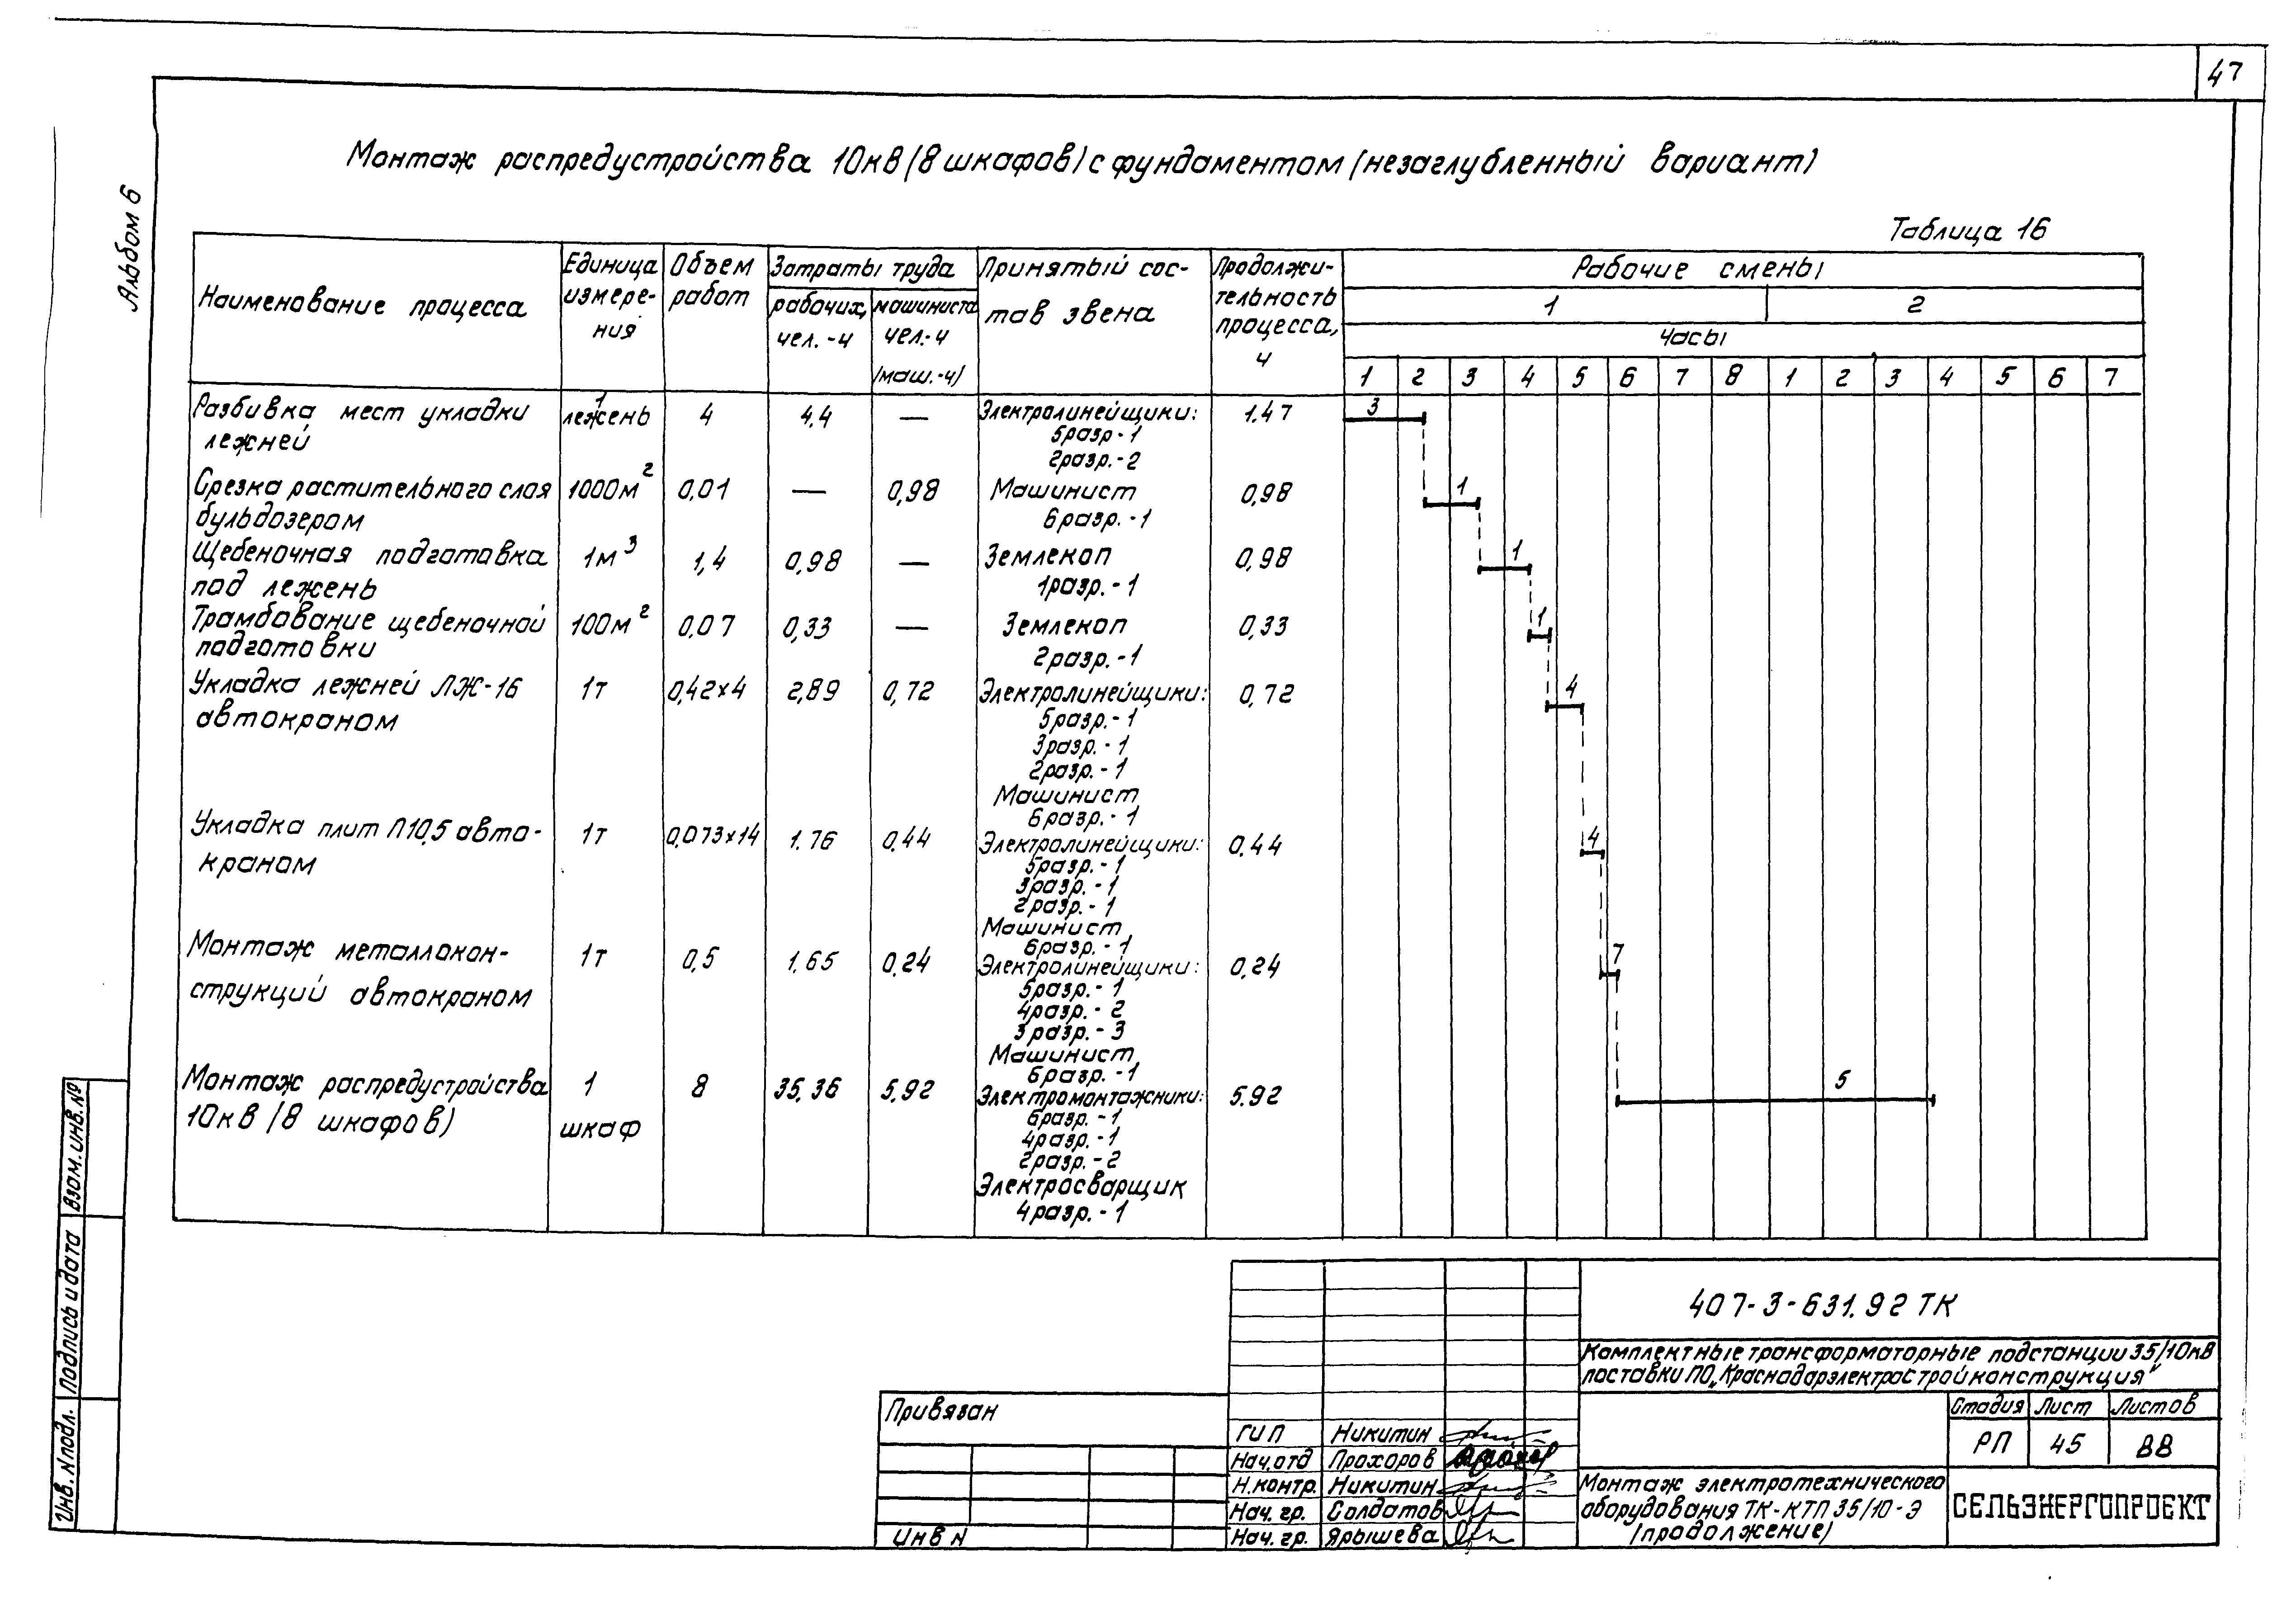 47
Альбом 6
Монтаж распредустройства 10кВ (8 шкафов) с фундаментом (незаглубленный вариант)
Таблица 16
Наименование процесса
Единица измере-ния
Объем работ
Затраты труда
рабочих, чел.-ч
машиниста чел.-ч (маш.-ч)
Принятый сос-тав звена
Продолжи-тельность процесса, ч
Рабочие смены
1 2
Часы
1 2 3 4 5 6 7 8 1 2 3 4 5 6 7
Разбивка мест укладки 1 лежень 4 4.4 — Электролинейщики: 1.47 3
лежней 5разр-1
2разр.-2
Срезка растительного слоя 1000м² 0,01 — 0,98 Машинист 0,98 1
бульдозером 6разр.-1
Щебеночная подготовка 1м³ 1,4 0,98 — Землекоп 0,98 1
под лежень 1разр.-1
Трамбование щебеночной 100м² 0,07 0,33 — Землекоп 0,33 1
подготовки 2разр.-1
Укладка лежней ЛЖ-16 1т 0,42х4 2,89 0,72 Электролинейщики: 0,72 4
автокраном 5разр.-1
3разр.-1
2разр.-1
Машинист
6разр.-1
Укладка плит П10,5 авто- 1т 0,073х14 1.76 0,44 Электролинейщики: 0.44 4
краном 5разр.-1
3разр.-1
2разр.-1
Машинист
6разр.-1
Монтаж металлокон- 1т 0,5 1.65 0.24 Электролинейщики: 0,24 7
струкций автокраном 5разр.-1
4разр.-2
3разр.-3
Машинист
6разр.-1
Монтаж распредустройства 1 8 35,36 5.92 Электромонтажники: 5.92 5
10кВ (8 шкафов) шкаф 6разр.-1
4разр.-1
2разр.-2
Электросварщик
4разр.-1
Взам.инв.№
Подпись и дата
Инв.№подл.
Привязан
Инв N
407-3-631.92 ТК
Комплектные трансформаторные подстанции 35/10кВ
поставки ПО „Краснодарэлектростройконструкция"
Стадия Лист Листов
РП 45 88
ГИП Никитин
Нач.отд Прохоров
Н.контр. Никитин
Нач. гр. Солдатов
Нач. гр. Ярышева
Монтаж электротехнического
оборудования ТК-КТП 35/10-Э
(продолжение)
СЕЛЬЭНЕРГОПРОЕКТ